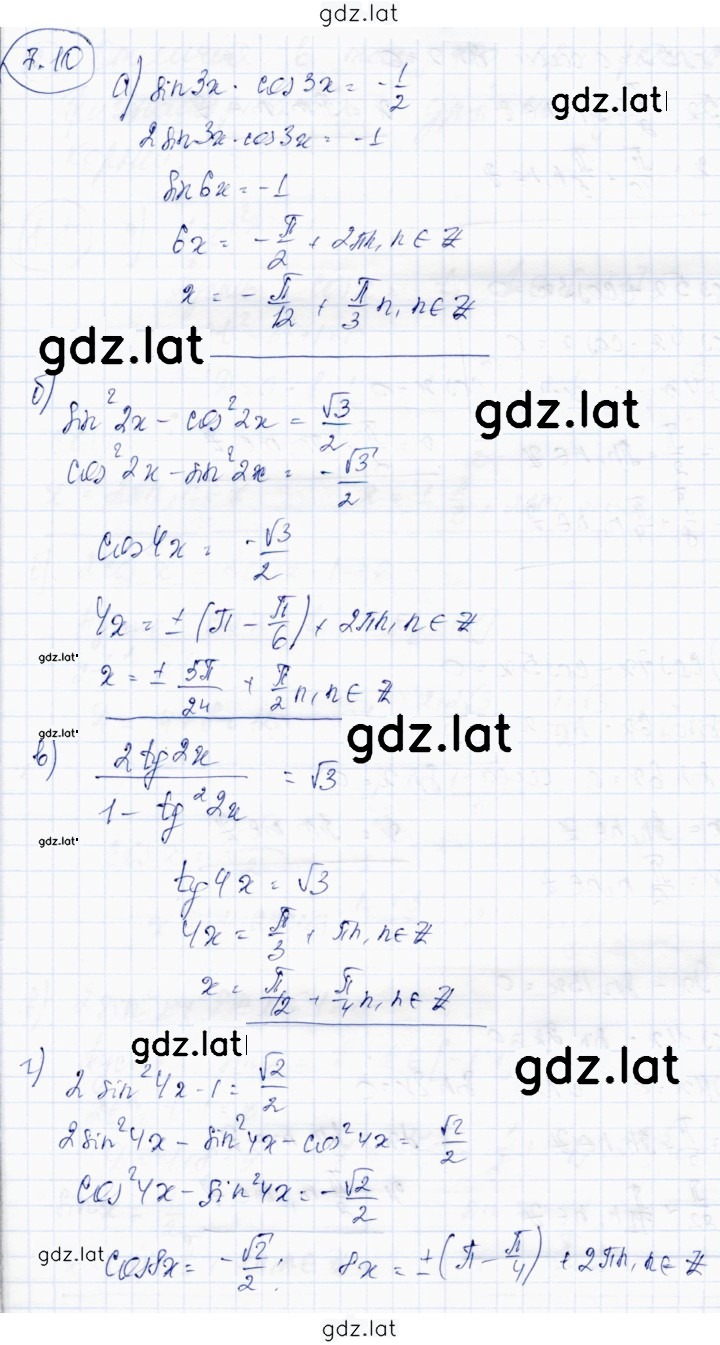 gdz.lat
7.10
а) sin3x · cos3x = -1/2
gdz.lat
2sin3x·cos3x = -1
sin6x = -1
6x = -π/2 + 2πn, n ∈ Z
x = -π/12 + π/3 n, n ∈ Z
gdz.lat
б) sin²2x - cos²2x = √3/2
gdz.lat
cos²2x - sin²2x = -√3/2
cos4x = -√3/2
4x = ±(π - π/6) + 2πn, n ∈ Z
gdz.lat
x = ± 5π/24 + π/2 n, n ∈ Z
gdz.lat
gdz.lat
в) 2tg2x / 1 - tg²2x = √3
gdz.lat
tg4x = √3
4x = π/3 + πn, n ∈ Z
x = π/12 + π/4 n, n ∈ Z
gdz.lat
gdz.lat
г) 2sin²4x - 1 = √2/2
2sin²4x - sin²4x - cos²4x = √2/2
cos²4x - sin²4x = -√2/2
gdz.lat
cos8x = -√2/2; 8x = ±(π - π/4) + 2πn, n ∈ Z
gdz.lat